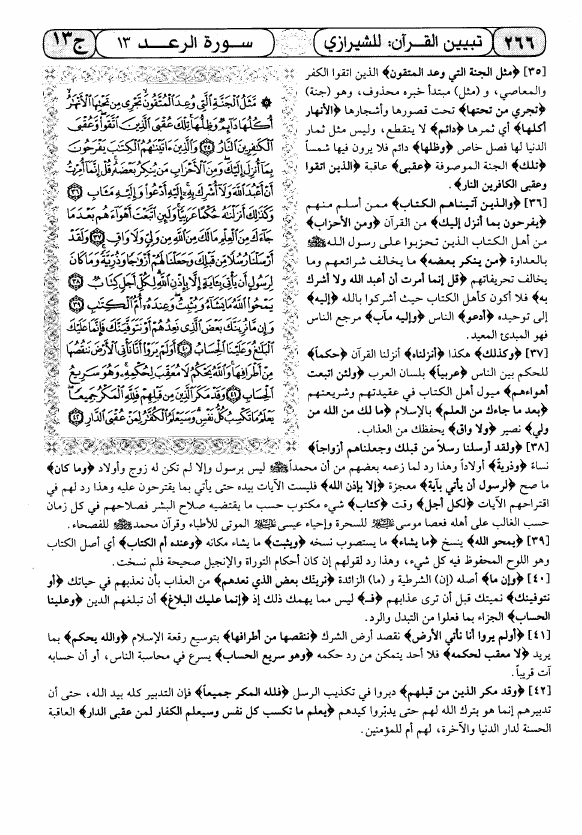 ٢٦٦
تبيين القرآن: للشيرازي
سورة الرعد ١٣
ج١٣
[٣٥] ﴿مثل الجنة التي وعد المتقون﴾ الذين اتقوا الكفر
والمعاصي، و (مثل) مبتدأ خبره محذوف، وهو (جنة)
﴿تجري من تحتها﴾ تحت قصورها وأشجارها ﴿الأنهار
أكلها﴾ أي ثمرها ﴿دائم﴾ لا ينقطع، وليس مثل ثمار
الدنيا لها فصل خاص ﴿وظلها﴾ دائم فلا يرون فيها شمساً
﴿تلك﴾ الجنة الموصوفة ﴿عقبى﴾ عاقبة ﴿الذين اتقوا
وعقبى الكافرين النار﴾.
[٣٦] ﴿والذين آتيناهم الكتاب﴾ ممن أسلم منهم
﴿يفرحون بما أنزل إليك﴾ من القرآن ﴿ومن الأحزاب﴾
من أهل الكتاب الذين تحزبوا على رسول الله ﷺ
بالعداوة ﴿من ينكر بعضه﴾ ما يخالف شرائعهم وما
يخالف تحريفاتهم ﴿قل إنما أمرت أن أعبد الله ولا أشرك
به﴾ فلا أكون كأهل الكتاب حيث أشركوا بالله ﴿إليه﴾
إلى توحيده ﴿أدعو﴾ الناس ﴿وإليه مآب﴾ مرجع الناس
فهو المبدئ المعيد.
[٣٧] ﴿وكذلك﴾ هكذا ﴿أنزلناه﴾ أنزلنا القرآن ﴿حكماً﴾
للحكم بين الناس ﴿عربياً﴾ بلسان العرب ﴿ولئن اتبعت
أهواءهم﴾ ميول أهل الكتاب في عقيدتهم وشريعتهم
﴿بعد ما جاءك من العلم﴾ بالإسلام ﴿ما لك من الله من
ولي﴾ نصير ﴿ولا واق﴾ يحفظك من العذاب.
[٣٨] ﴿ولقد أرسلنا رسلاً من قبلك وجعلناهم أزواجاً﴾
مَثَلُ الْجَنَّةِ الَّتِي وُعِدَ الْمُتَّقُونَ تَجْرِي مِن تَحْتِهَا الْأَنْهَارُ
أُكُلُهَا دَائِمٌ وَظِلُّهَا تِلْكَ عُقْبَى الَّذِينَ اتَّقَوا وَّعُقْبَى
الْكَافِرِينَ النَّارُ ٣٥ وَالَّذِينَ آتَيْنَاهُمُ الْكِتَابَ يَفْرَحُونَ
بِمَا أُنزِلَ إِلَيْكَ وَمِنَ الْأَحْزَابِ مَن يُنكِرُ بَعْضَهُ قُلْ إِنَّمَا أُمِرْتُ
أَنْ أَعْبُدَ اللَّهَ وَلَا أُشْرِكَ بِهِ إِلَيْهِ أَدْعُو وَإِلَيْهِ مَآبِ ٣٦
وَكَذَلِكَ أَنزَلْنَاهُ حُكْمًا عَرَبِيًّا وَلَئِنِ اتَّبَعْتَ أَهْوَاءَهُم بَعْدَمَا
جَاءَكَ مِنَ الْعِلْمِ مَا لَكَ مِنَ اللَّهِ مِن وَلِيٍّ وَلَا وَاقٍ ٣٧ وَلَقَدْ
أَرْسَلْنَا رُسُلًا مِّن قَبْلِكَ وَجَعَلْنَا لَهُمْ أَزْوَاجًا وَذُرِّيَّةً وَمَا كَانَ
لِرَسُولٍ أَن يَأْتِيَ بِآيَةٍ إِلَّا بِإِذْنِ اللَّهِ لِكُلِّ أَجَلٍ كِتَابٌ ٣٨
يَمْحُوا اللَّهُ مَا يَشَاءُ وَيُثْبِتُ وَعِندَهُ أُمُّ الْكِتَابِ ٣٩
وَإِن مَّا نُرِيَنَّكَ بَعْضَ الَّذِي نَعِدُهُمْ أَوْ نَتَوَفَّيَنَّكَ فَإِنَّمَا عَلَيْكَ
الْبَلَاغُ وَعَلَيْنَا الْحِسَابُ ٤٠ أَوَلَمْ يَرَوْا أَنَّا نَأْتِي الْأَرْضَ نَنقُصُهَا
مِنْ أَطْرَافِهَا وَاللَّهُ يَحْكُمُ لَا مُعَقِّبَ لِحُكْمِهِ وَهُوَ سَرِيعُ
الْحِسَابِ ٤١ وَقَدْ مَكَرَ الَّذِينَ مِن قَبْلِهِمْ فَلِلَّهِ الْمَكْرُ جَمِيعًا
يَعْلَمُ مَا تَكْسِبُ كُلُّ نَفْسٍ وَسَيَعْلَمُ الْكُفَّارُ لِمَنْ عُقْبَى الدَّارِ ٤٢
نساءً ﴿وذرية﴾ أولاداً وهذا رد لما زعمه بعضهم من أن محمداً ﷺ ليس برسول وإلا لم تكن له زوج وأولاد ﴿وما كان﴾
ما صح ﴿لرسول أن يأتي بآية﴾ معجزة ﴿إلا بإذن الله﴾ فليست الآيات بيده حتى يأتي بما يقترحون عليه وهذا رد لهم في
اقتراحهم الآيات ﴿لكل أجل﴾ وقت ﴿كتاب﴾ شيء مكتوب حسب ما يقتضيه صلاح البشر فصلاحهم في كل زمان
حسب الغالب على أهله فعصا موسى للسحرة وإحياء عيسى الموتى للأطباء وقرآن محمد ﷺ للفصحاء.
[٣٩] ﴿يمحو الله﴾ ينسخ ﴿ما يشاء﴾ ما يستصوب نسخه ﴿ويثبت﴾ ما يشاء مكانه ﴿وعنده أم الكتاب﴾ أي أصل الكتاب
وهو اللوح المحفوظ فيه كل شيء، وهذا رد لقولهم إن كان أحكام التوراة والإنجيل صحيحة فلم نسخت.
[٤٠] ﴿وإن ما﴾ أصله (إن) الشرطية و (ما) الزائدة ﴿نرينك بعض الذي نعدهم﴾ من العذاب بأن نعذبهم في حياتك ﴿أو
نتوفينك﴾ نميتك قبل أن ترى عذابهم ﴿فـ﴾ ليس مما يهمك ذلك إذ ﴿إنما عليك البلاغ﴾ أن تبلغهم الدين ﴿وعلينا
الحساب﴾ الجزاء بما فعلوا من التبدل والرد.
[٤١] ﴿أولم يروا أنا نأتي الأرض﴾ نقصد أرض الشرك ﴿ننقصها من أطرافها﴾ بتوسيع رقعة الإسلام ﴿والله يحكم﴾ بما
يريد ﴿لا معقب لحكمه﴾ فلا أحد يتمكن من رد حكمه ﴿وهو سريع الحساب﴾ يسرع في محاسبة الناس، أو أن حسابه
آت قريباً.
[٤٢] ﴿وقد مكر الذين من قبلهم﴾ دبروا في تكذيب الرسل ﴿فلله المكر جميعاً﴾ فإن التدبير كله بيد الله، حتى أن
تدبيرهم إنما هو بترك الله لهم حتى يدبّروا كيدهم ﴿يعلم ما تكسب كل نفس وسيعلم الكفار لمن عقبى الدار﴾ العاقبة
الحسنة لدار الدنيا والآخرة، لهم أم للمؤمنين.